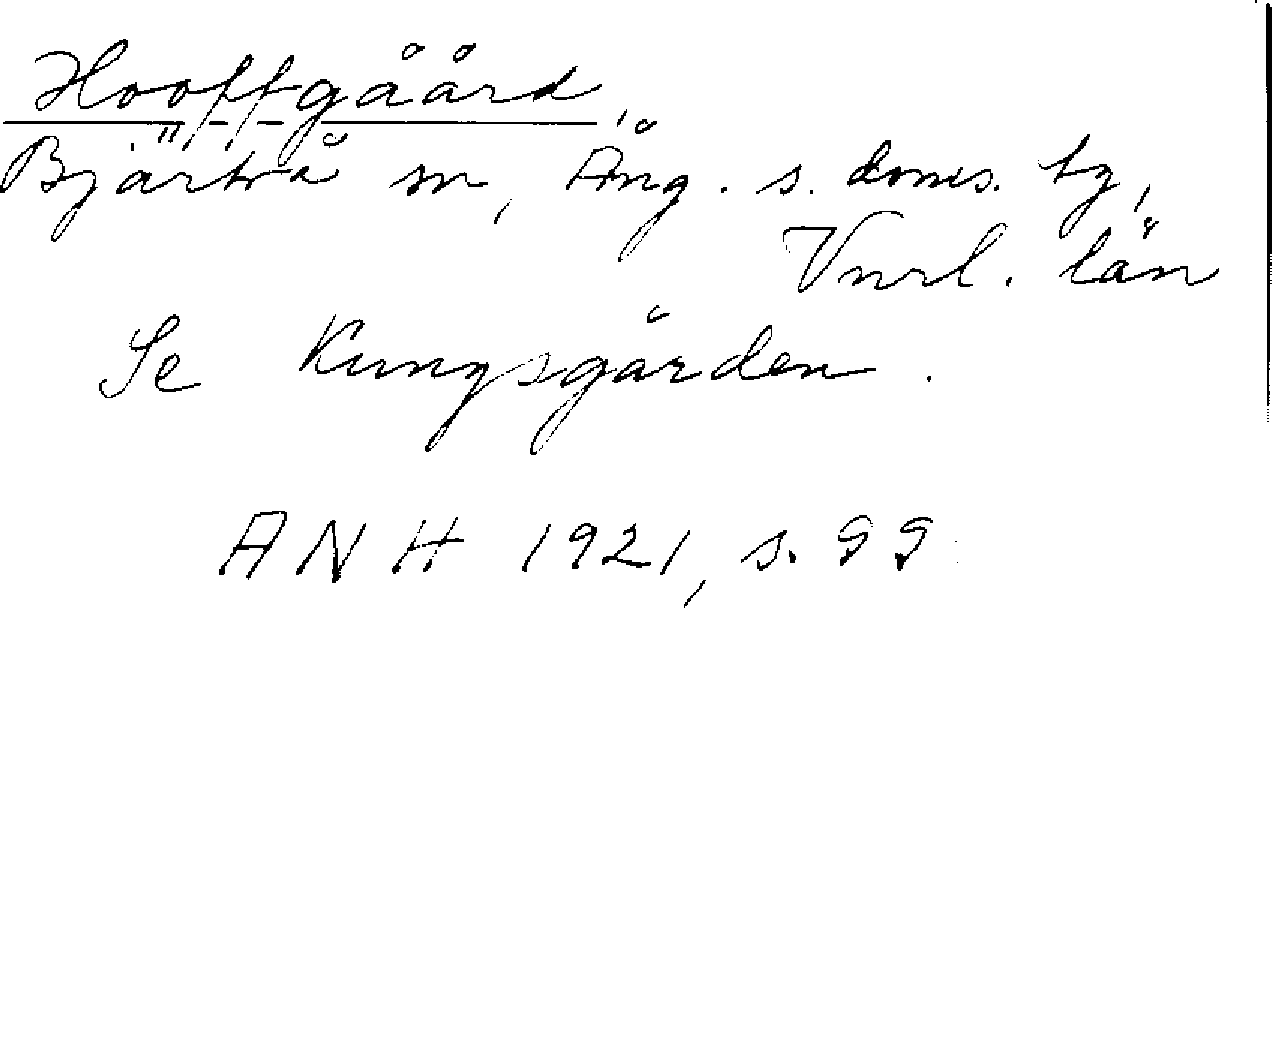 Hooffgåård,
Bjärtrå sn, Ång. s. doms. tg,
Vnrl. län
Se Kungsgården.
ANH 1921, s. 99